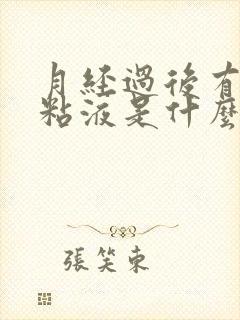 月經過後有
粘液是什麼
張笑東